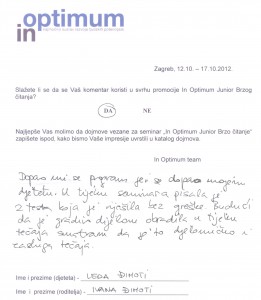 in optimum
Zagreb, 12.10. – 17.10.2012.
Slažete li se da se Vaš komentar koristi u svrhu promocije In Optimum Junior Brzog
čitanja?
DA NE
Najljepše Vas molimo da dojmove vezane za seminar „In Optimum Junior Brzo čitanje“
zapišete ispod, kako bismo Vaše impresije uvrstili u katalog dojmova.
In Optimum team
Dopao mi se program jer se dopao mojem
djetetu. U tijeku seminara pisala je
2 testa koja je riješila bez greške. Budući
da je gradivo dijelom obradila u tijeku
tečaja smatram da je to djelomično i
zasluga tečaja.
Ime i prezime (djeteta) - LEDA
Ime i prezime (roditelja) - IVANA